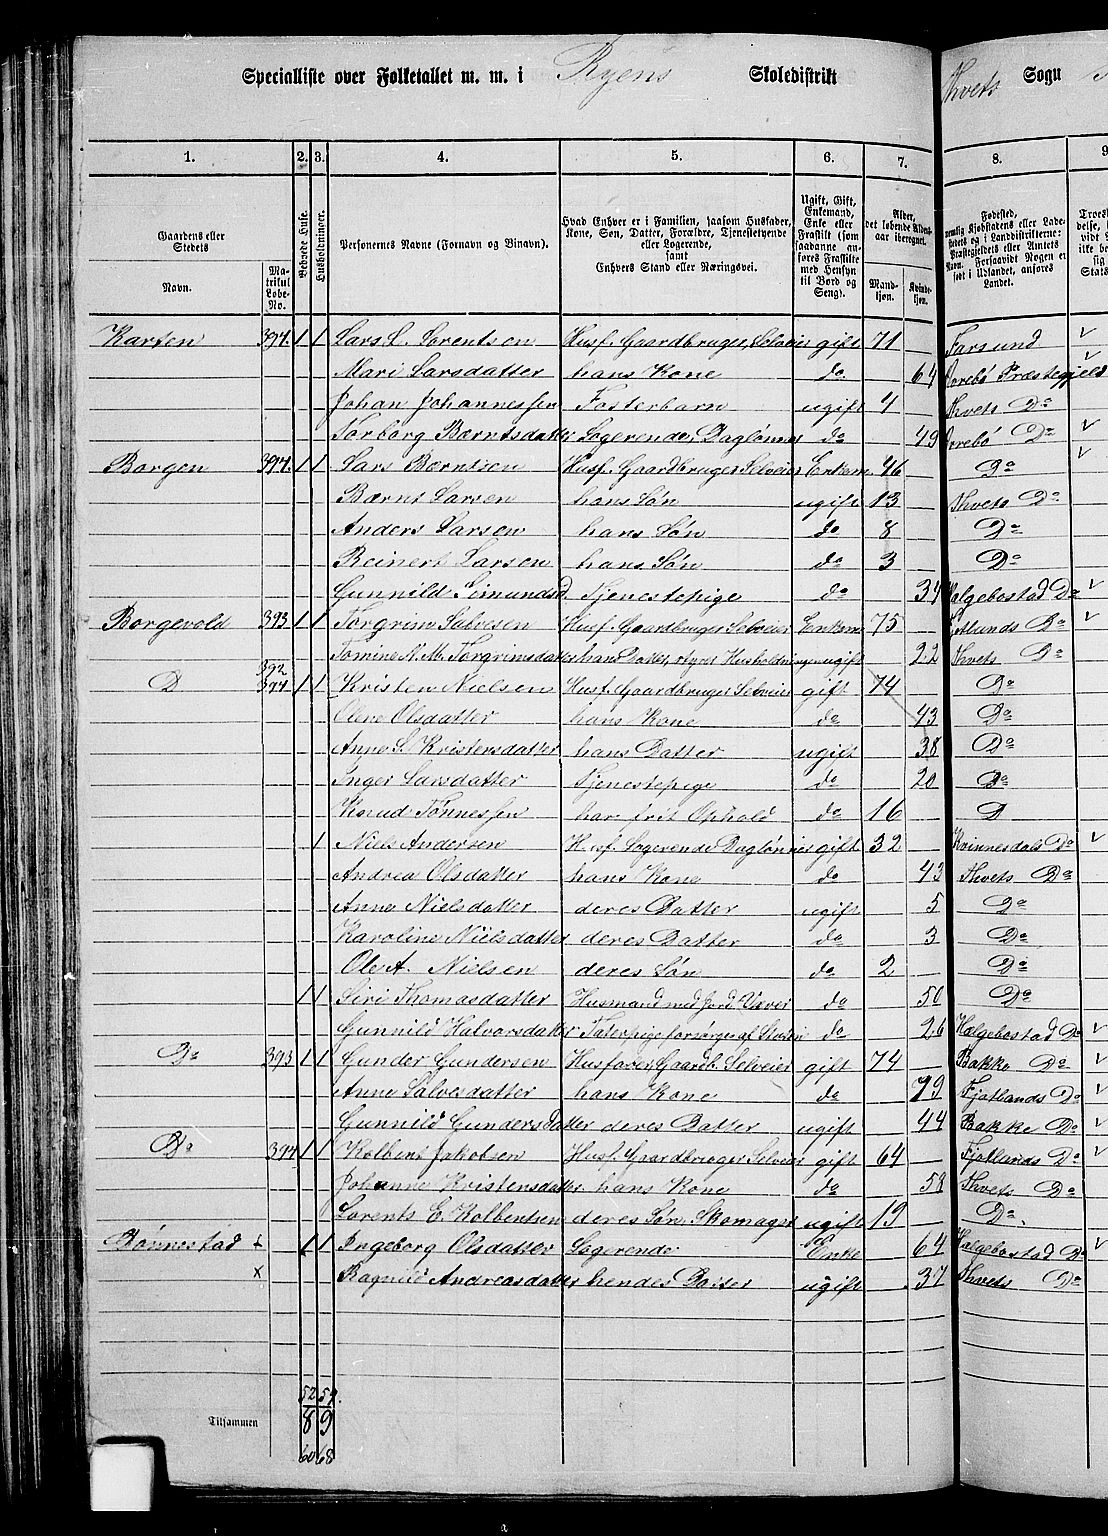 Specialliste over Folketallet m. m. i Ryens Skoledistrikt Kvets Sogn
1. 2. 3. 4. 5. 6. 7. 8. 9
Gaardens eller Stedets
Navn.
Matrikul Løbe-No.
Beboede Huse.
Husholdninger.
Personernes Navne (Fornavn og Binavn).
Hvad Enhver er i Familien, saasom Husfader, Kone, Søn, Datter, Forældre, Tjenestetyende eller Logerende, samt Enhvers Stand eller Næringsvei.
Ugift, Gift, Enkemand, Enke eller Fraskilt (som saadanne anføres Fraskilte med Hensyn til Bord og Seng).
Alder, det løbende Aldersaar iberegnet.
Mandkjøn. Kvindekjøn.
Fødested,
Karten 394. 1 1 Lars L. Lorentsen Husf. Gaardbruger, Selveier gift 71 Farsund
Mari Larsdatter hans Kone do 64 Præstegjeld
Johan Johannessen Fosterbarn ugift 4 Kvets Do
Torborg Bærntsdatter Logerende, Daglønner do 49 Do
Borgen 394. 1 1 Lars Berntsen Husf. Gaardbruger Selveier Enkem 46 Do
Bærnt Larsen hans Søn ugift 13 Kvets Do
Anders Larsen hans Søn do 8 Do
Reinert Larsen hans Søn do 3 Do
Gunnild Simundsd. Tjenestepige do 34 Hægebostad Do
Borgevold 393 1 1 Torgrim Salvesen Husf. Gaardbruger Selveier Enkem 75 Fjotlands Do
Tomine N. M. Torgrimsdatter hans Datter, styrer Husholdningen ugift 22 Kvets Do
D 392 394 1 1 Kristen Nielsen Husf. Gaardbruger Selveier gift 74 Do
Olene Olsdatter hans Kone do 43 Do
Anne S. Kristensdatter hans Datter ugift 38 Do
Inger Larsdatter Tjenestepige do 20 Do
Knud Tønnessen har frit Ophold do 16 D
1 Niels Andersen Husf. Logerende Daglønner gift 32 Kvinnesdals Do
Andrea Olsdatter hans Kone do 43 Kvets Do
Anne Nielsdatter deres Datter ugift 5 Do
Karoline Nielsdatter deres Datter do 3 Do
Ole A. Nielsen deres Søn do 2 Do
1 1 Siri Thomasdatter Husmand med Jord Væver do 50 Do
Gunnild Halvorsdatter Taterpige forsørges af Staten do 26 Hægebostad Do
Do 393 1 1 Gunder Gundersen Husfader, Gaardb. Selveier gift 74 Bakke Do
Anne Salvesdatter hans Kone do 79 Fjotlands Do
Gunnild Gundersdatter deres Datter ugift 44 Bakke Do
Do 394 1 1 Kolbent Jakobsen Husf. Gaardbruger Selveier gift 64 Fjotlands Do
Johanne Kristensdatter hans Kone do 58 Kvets Do
Lorents E. Kolbentsen deres Søn Skomager ugift 19 Do.
Tønnestad 1 1 Ingeborg Olsdatter Logerende Enke 64 Hægebostad Do
x Ragnild Andreasdatter hendes Datter ugift 37 Kvets Do
52 59.
Tilsammen 8 9
60 68